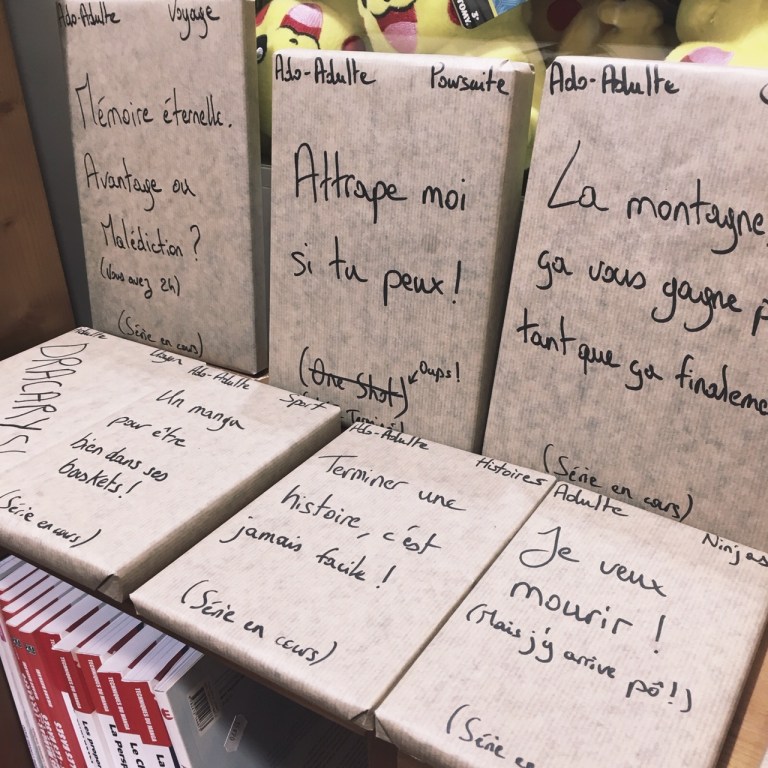 Ado-Adulte Voyage
Mémoire éternelle.
Avantage ou
Malédiction ?
(Vous avez 2h)
(Série en cours)
Ado-Adulte Poursuite
Attrape moi
si tu peux !
(One Shot) Oups !
Terminé !
Ado-Adulte
La montagne,
ça vous gagne
tant que ça
(Série en cours)
TOMY.
Adulte
DRACARYS
(Série en cours)
Ado-Adulte Sport
Un manga
pour être
bien dans ses
baskets !
Ado-Adulte Histoires
Terminer une
histoire, c'est
jamais facile !
(Série en cours)
Adulte Ninjas
Je veux
mourir !
(Mais j'y arrive pô !)
(Série en